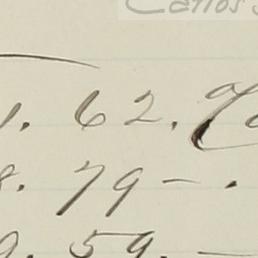 Carlos
1. 62. %
8. 79 - .
9. 59. -